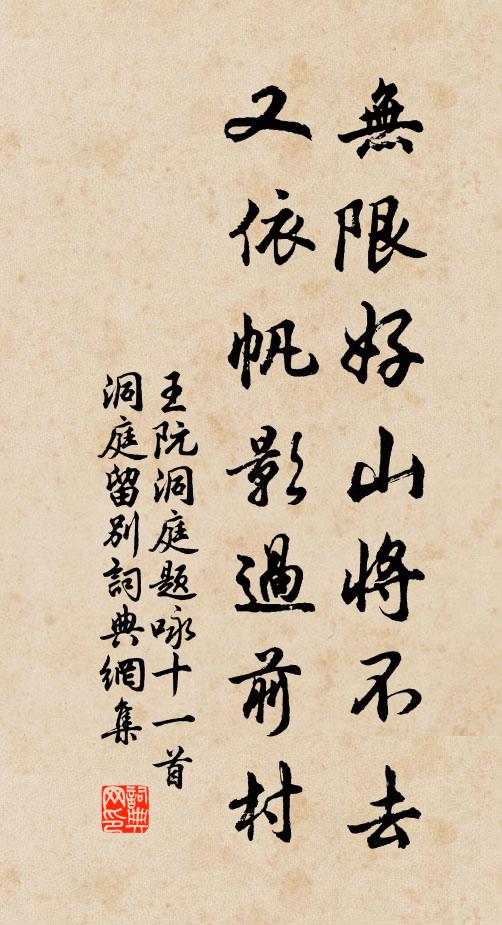 無限好山將不去
又依帆影過前村
王阮洞庭题咏十一首
洞庭留别詞典網集
詞典
网印